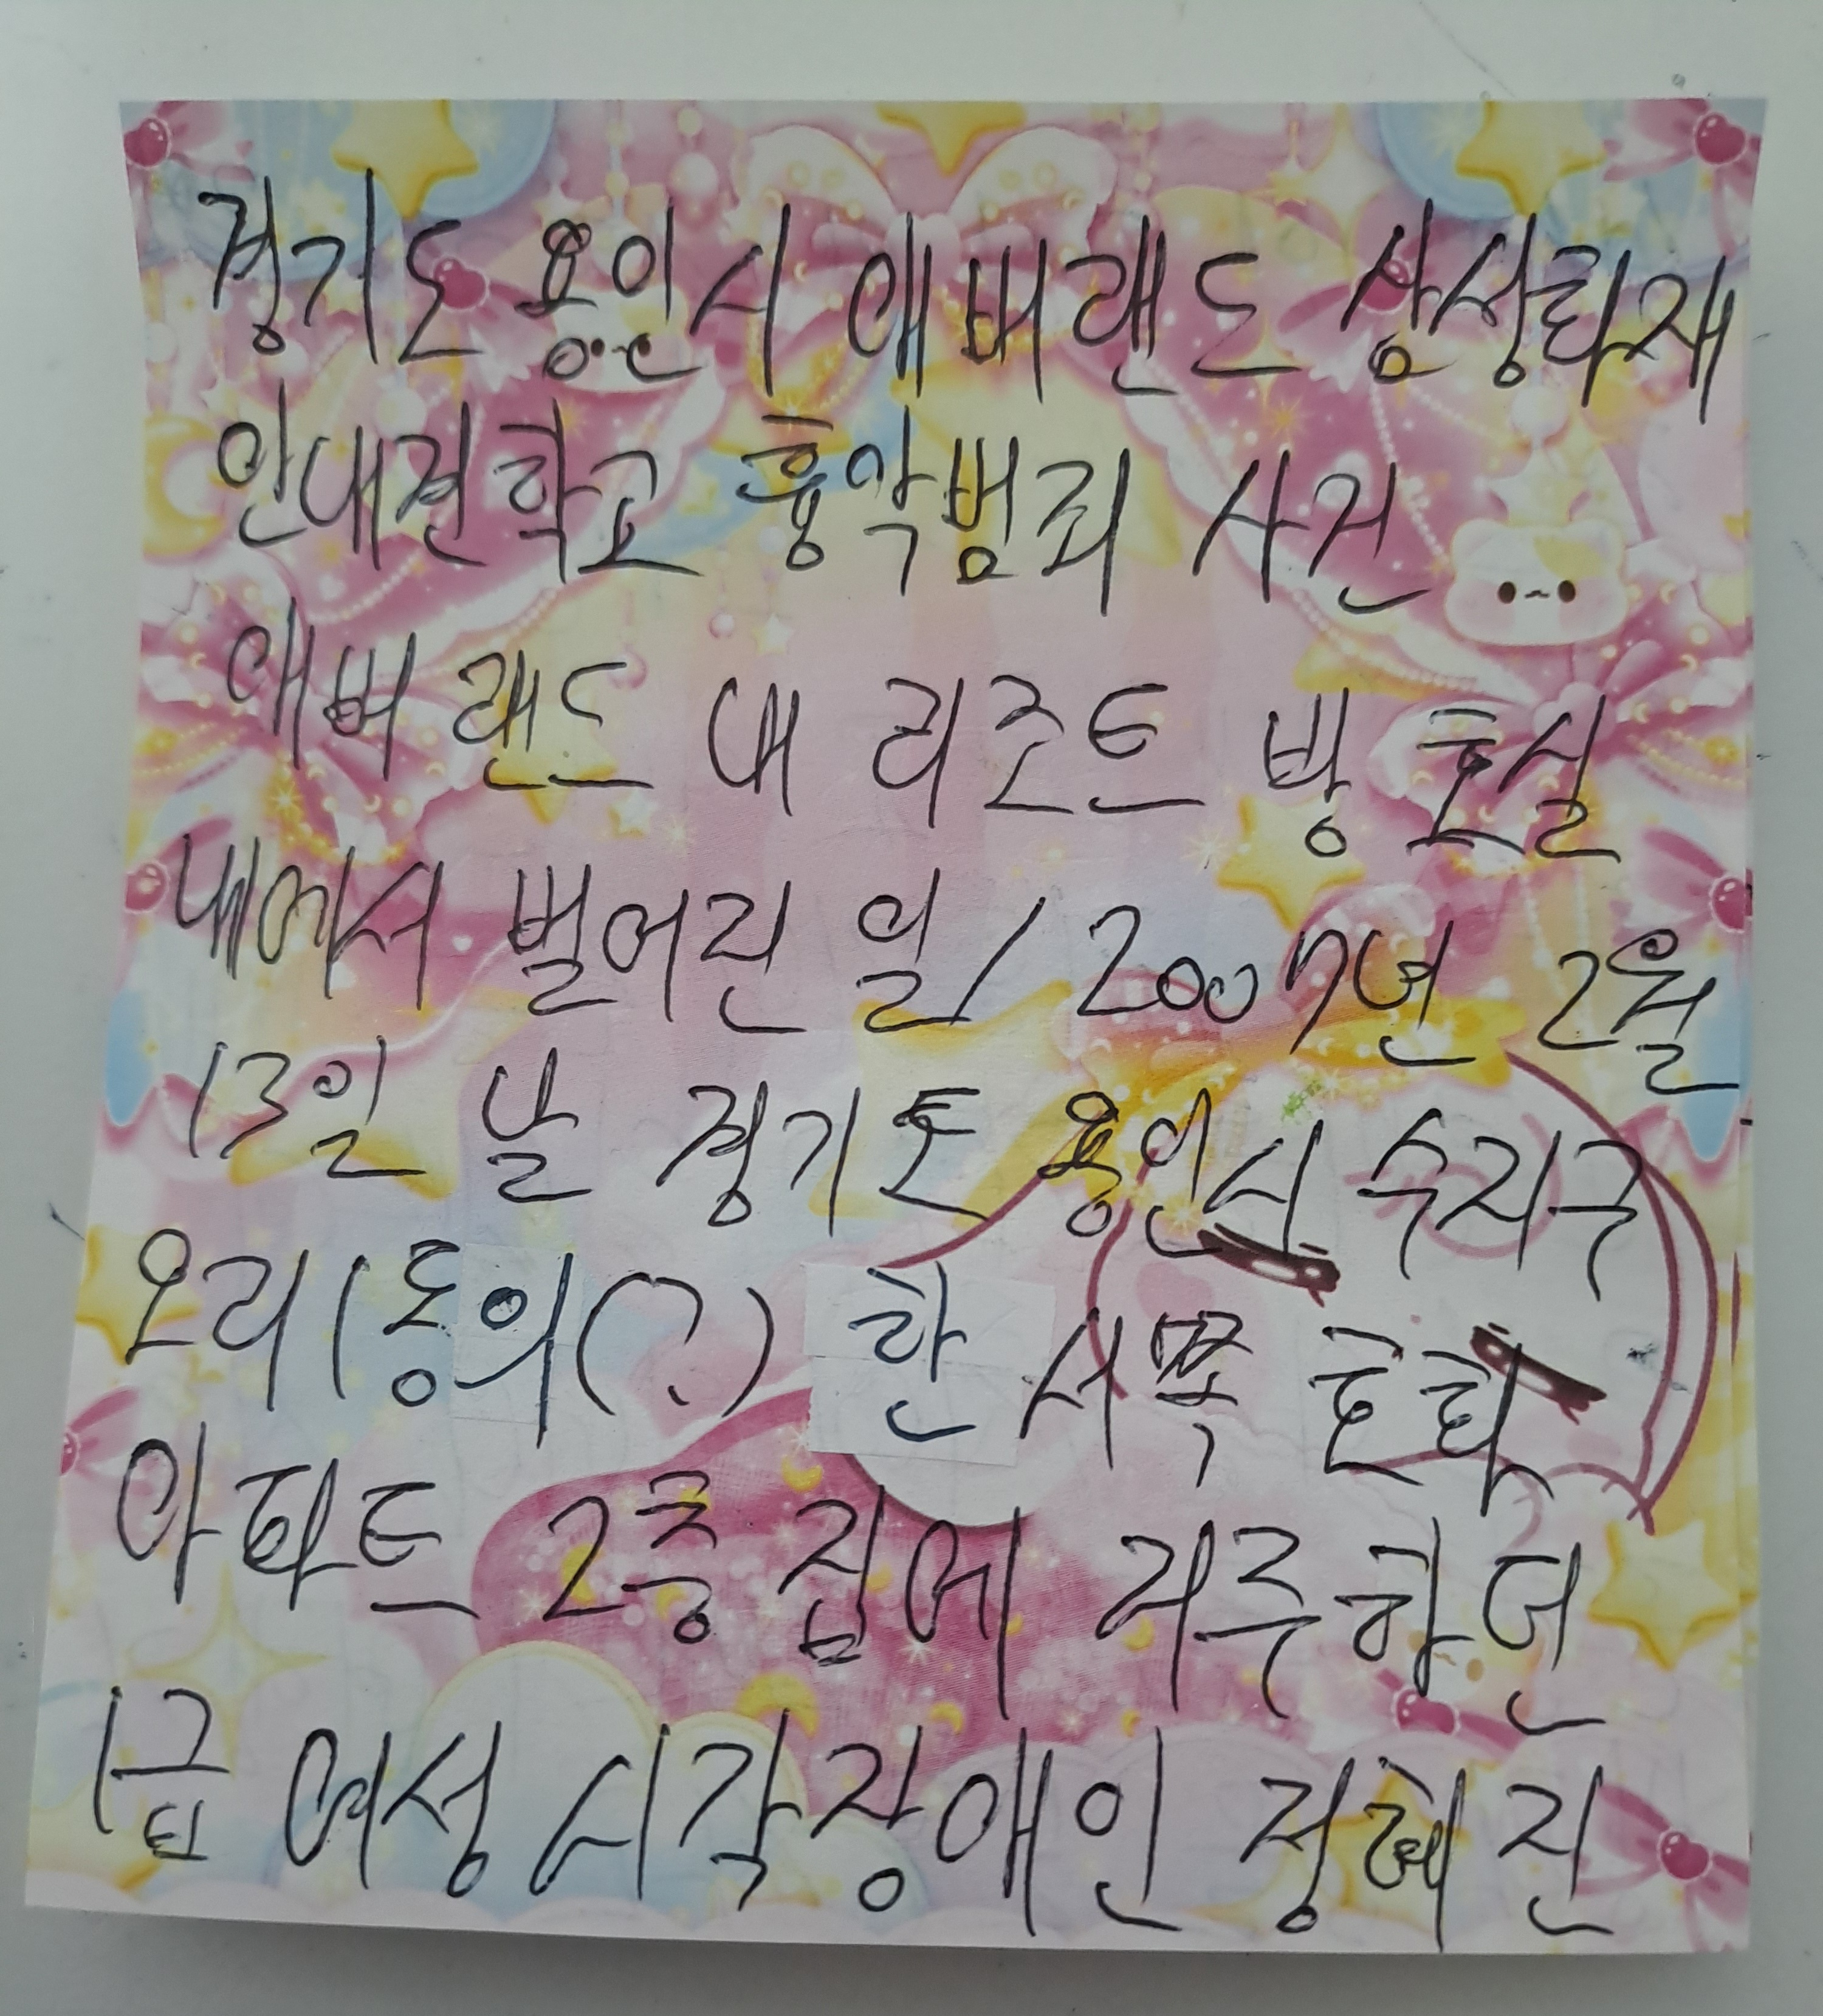 경기도 용인시 애버랜드 삼성화재
안내견학교 흉악범죄 사건
애버랜드 내 리조트 방 호실
내에서 벌어진 일/2007년 2월
13일 날 경기도 용인시 수지구
오리(동의(?) 한 서쪽
아파트 2층 집에 거주하던
1급 여성 시각장애인 정혜진